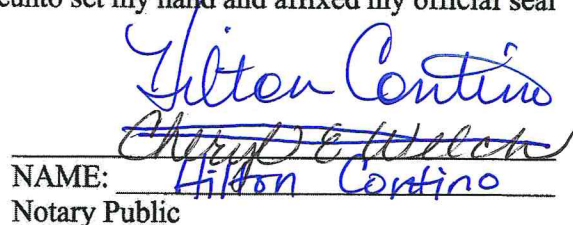 eunto set my hand and affixed my official seal
Hilton Contino
Cheryl E. Welch
NAME: Hilton Contino
Notary Public